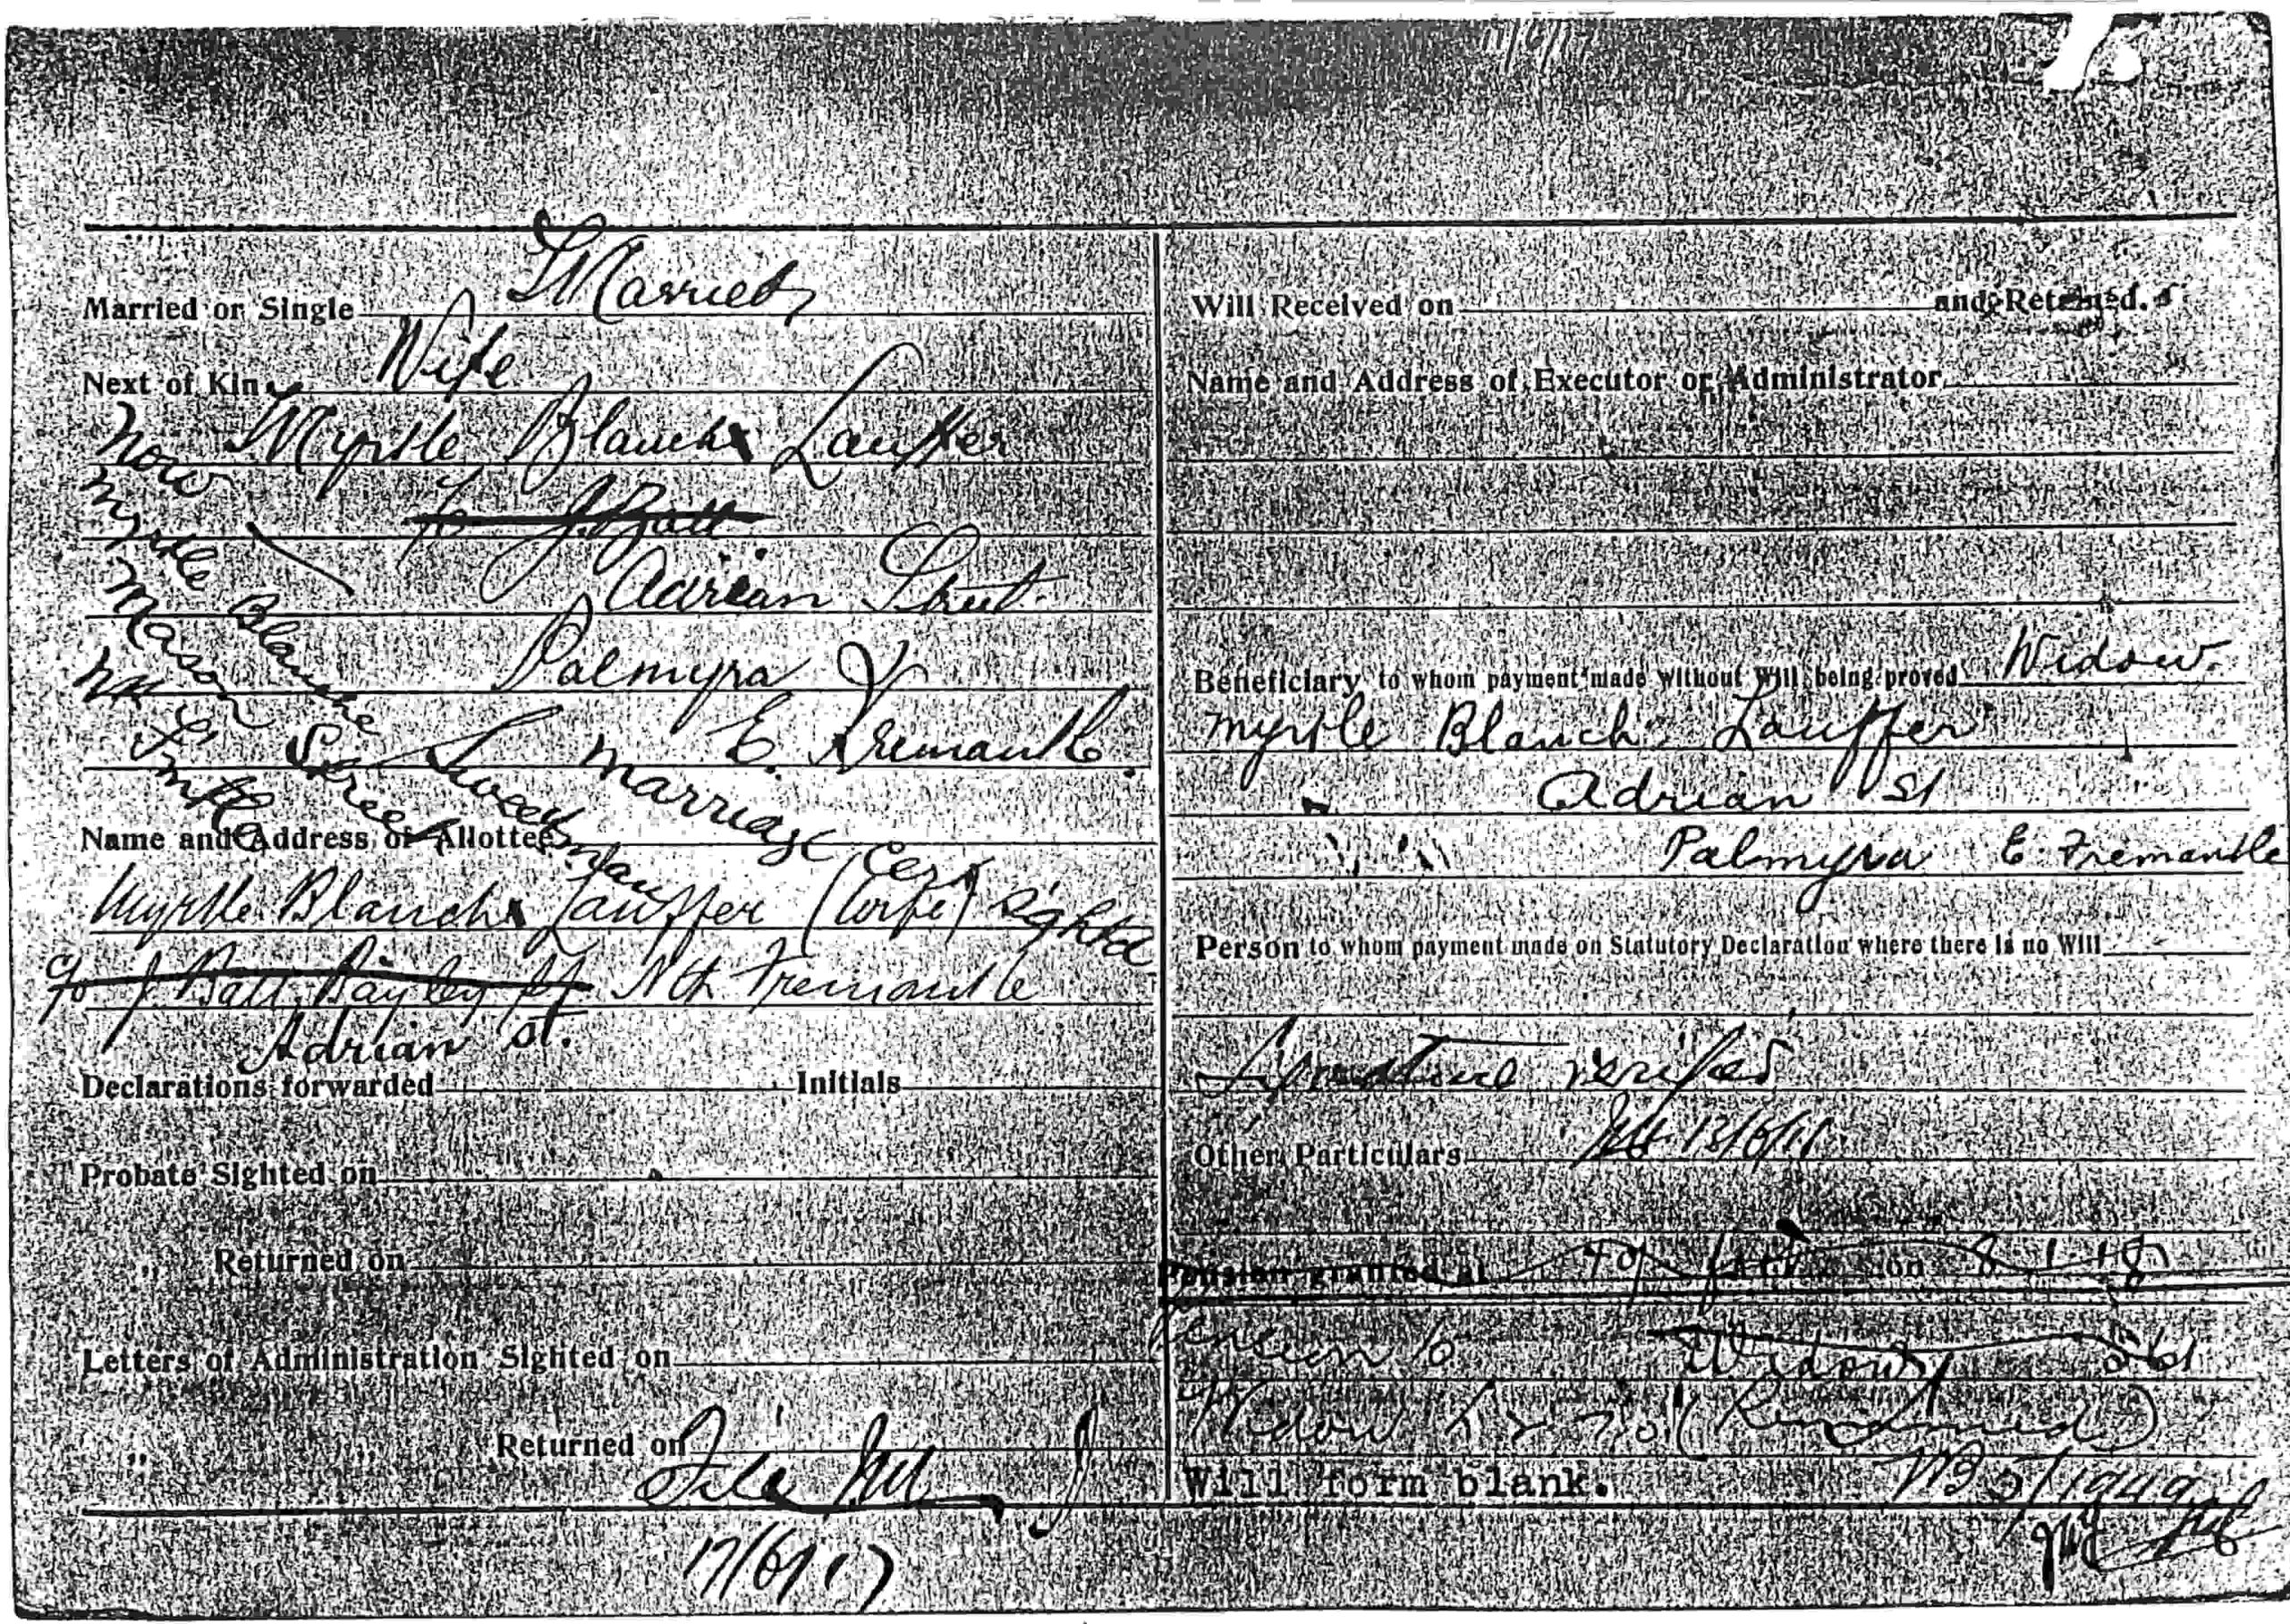 Married or Single Married
Next of Kin Wife
Myrtle Blanch Lauffer
c/o J. Batt
Adrian Street
Palmyra
E. Fremantle.
Now
Myrtle Blanche
Mason Street
Nth
Fmtle
marriage cert sighted
Name and Address of Allottee
Myrtle Blanch Lauffer (Wife)
c/o J. Batt, Bayley St Nth Fremantle
Adrian St.
Declarations forwarded Initials
Probate Sighted on
„ Returned on
Letters of Administration Sighted on
„ „ Returned on
File
17/6/17
Will Received on and Retained.
Name and Address of Executor or Administrator
Beneficiary to whom payment made without Will being proved Widow.
Myrtle Blanch Lauffer
Adrian St
Palmyra E. Fremantle
Person to whom payment made on Statutory Declaration where there is no Will
Signature verified
Other Particulars
Pension granted at on 8-1-18
Pension to Widow
Widow
Will form blank.